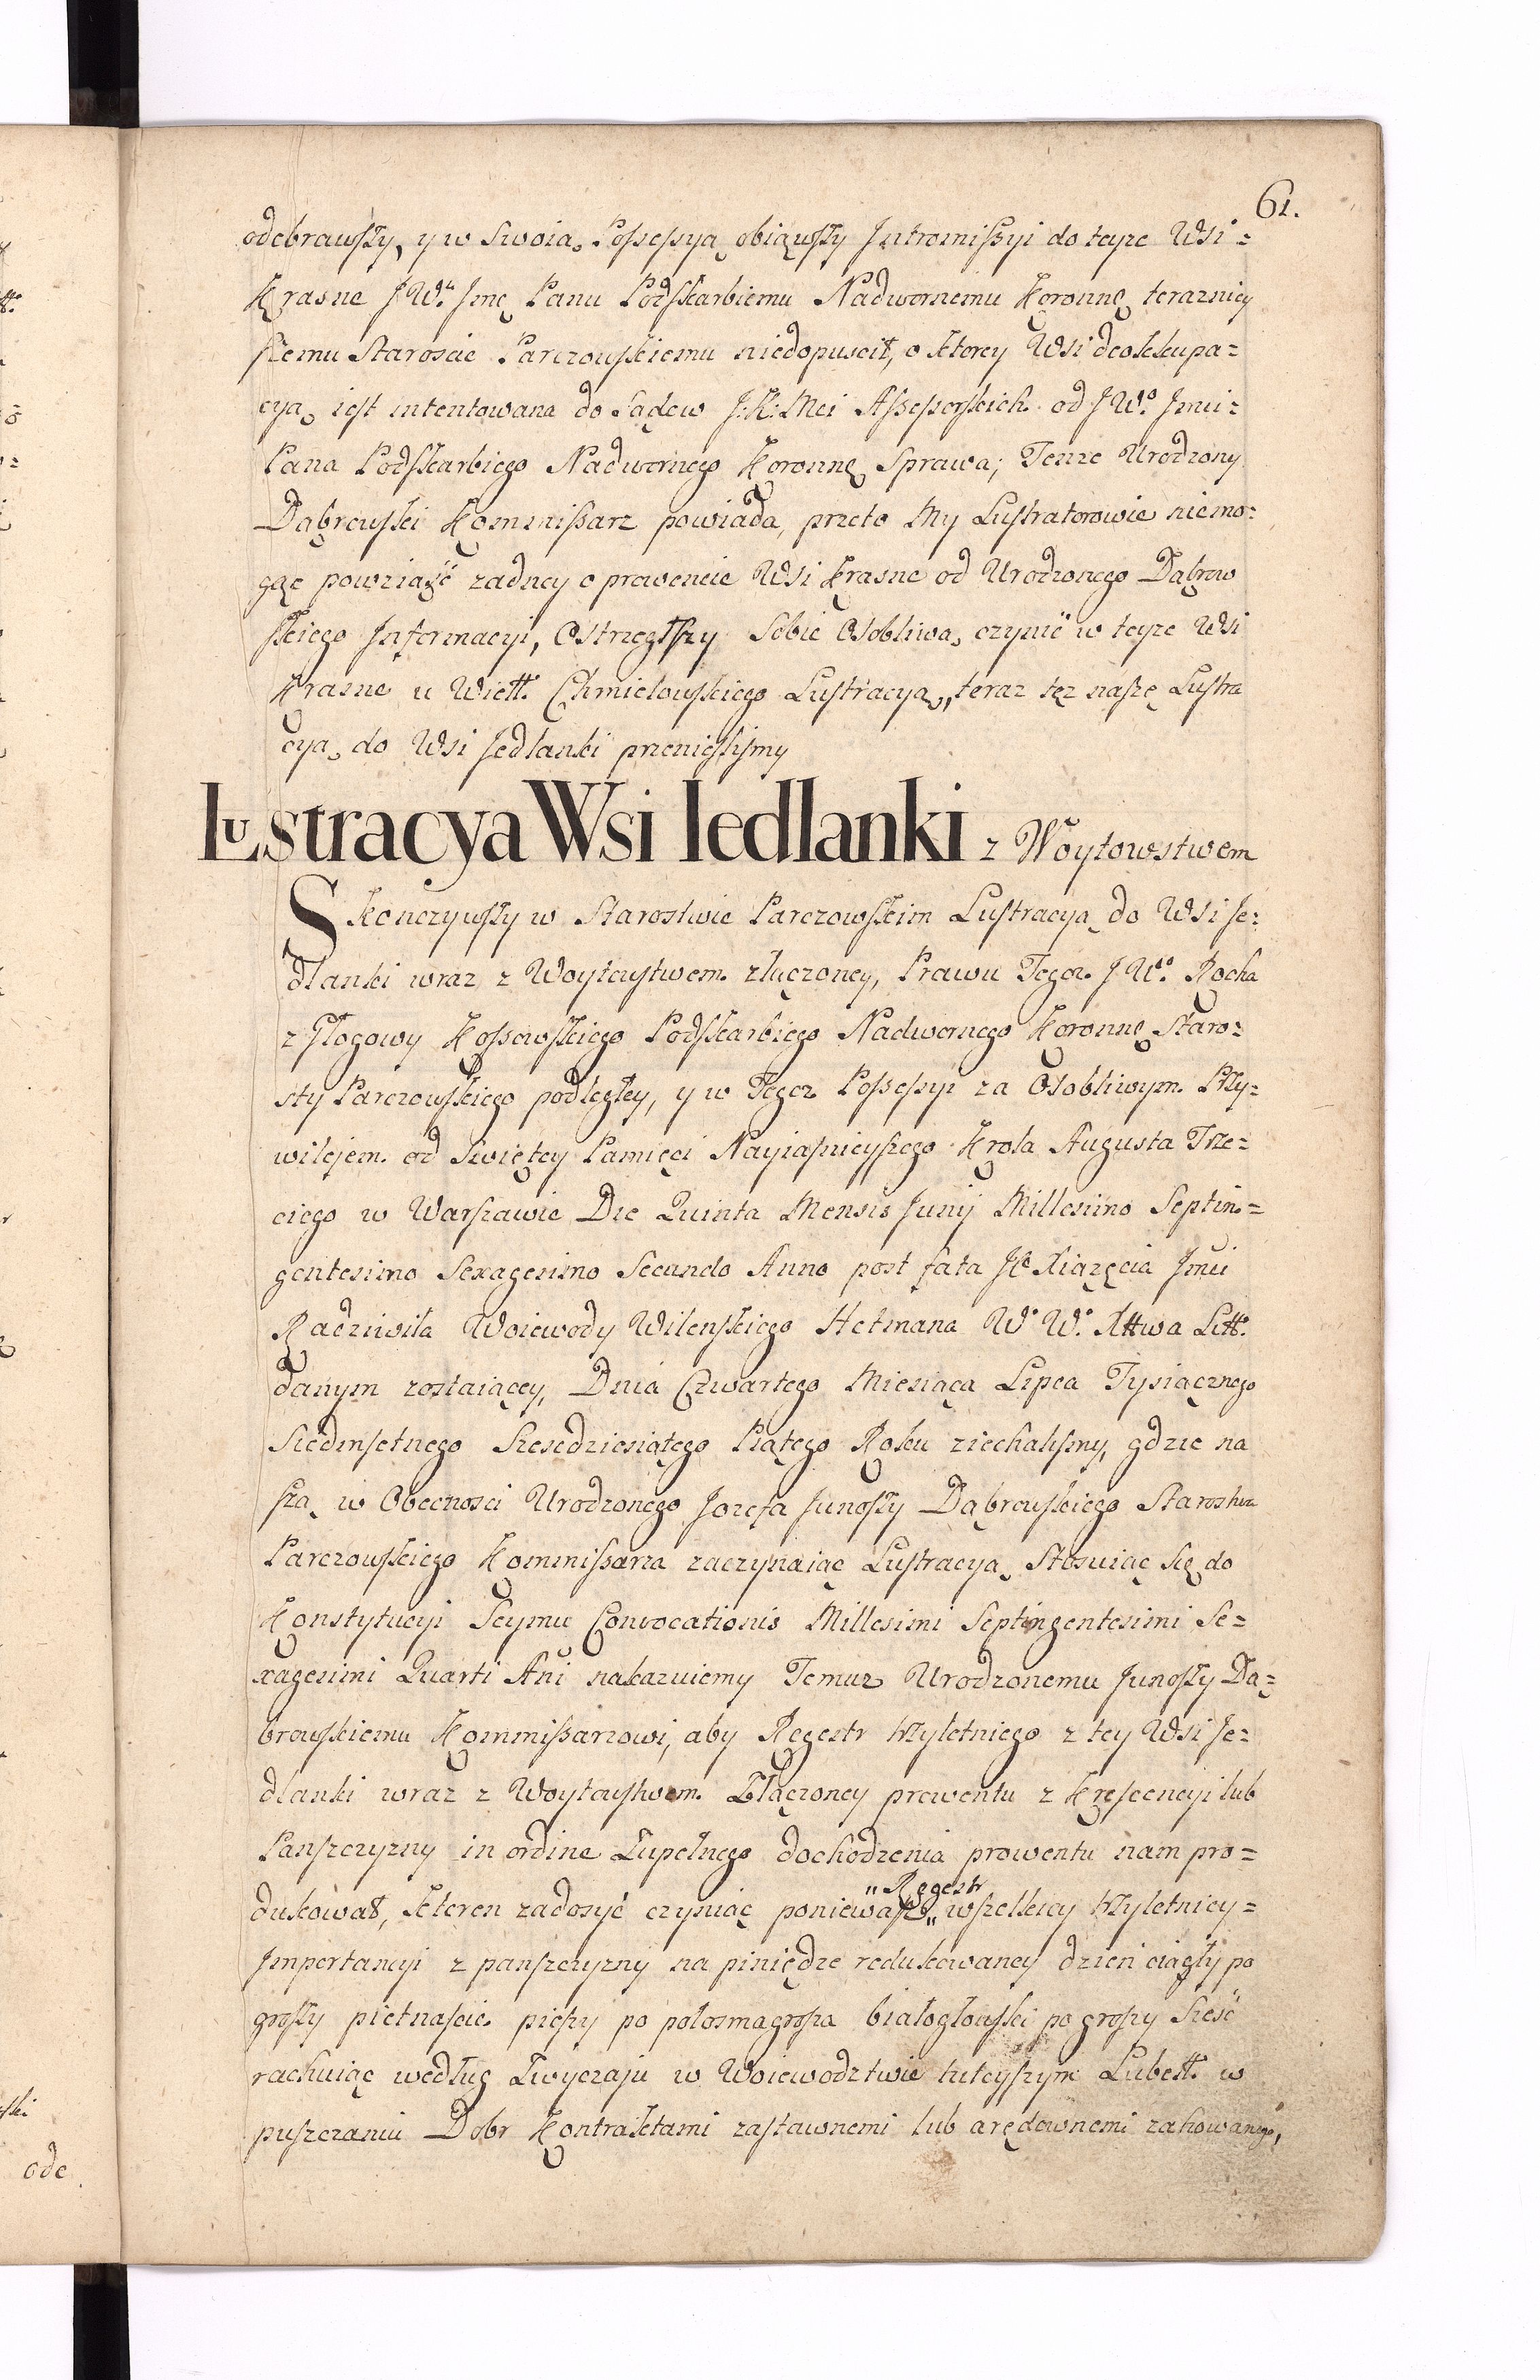 61.
odebrawszy, y w Swoią Possessyą obiąwszy Intromissyi do teyze Wsi=
Krasne JWu Jmę Panu Podskarbiemu Nadwornemu Koronnę terazniey
szemu Staroscie Parczowskiemu niedopuscił, o ktorey Wsi deokkupa=
cyą iest intentowana do Sądow J:K:Mci Assessorskich od JWo Jmci=
Pana Podskarbiego Nadwornego Koronnę Sprawa; Tenze Urodzony
Dąbrowski Kommissarz powiada, przeto My Lustratorowie niemo=
gąc powziąść zadney o prowencie Wsi Krasne od Urodzonego Dąbrow
skiego Informacyi, Ostrzegłszy Sobie Osobliwą czynić w teyze Wsi
Krasne u Wiell. Chmielowskiego Lustracyą, teraz tęz naszę Lustra
cyą do Wsi Jedlanki przeniesliśmy
Lustracya Wsi Iedlanki z Woytowstwem
Skonczywszy w Starostwie Parczowskim Lustracyą do Wsi Je=
dlanki wraz z Woytostwem złączoney, Prawu Tegoz JWo. Rocha
z Głogowy Kossowskiego Podskarbiego Nadwornego Koronnę Staro=
sty Parczowskiego podległey, y w Tegoz Possessyi za Osobliwym Przy=
wilejem od Swiętey Pamięci Nayiasnieyszego Krola Augusta Trze=
ciego w Warszawie Die Quinta Mensis Junij Millesimo Septin=
gentesimo Sexagesimo Secundo Anno post fata JO Xiązęcia Jmci
Radziwiła Woiewody Wilenskiego Hetmana Wo Wo. Xttwa Litt.
danym zostaiącey, Dnia Czwartego Miesiąca Lipca Tysiącznego
Siedmsetnego Szescdziesiątego Piątego Roku ziechalismy, gdzie na
szą w Obecnosci Urodzonego Jozefa Junoszy Dąbrowskiego Starostwa
Parczowskiego Kommissarza zaczynaiąc Lustracyą Stosuiąc Się do
Konstytucyi Seymu Convocationis Millesimi Septingentesimi Se=
xagesimi Quarti Ani nakazuiemy Temuz Urodzonemu Junoszy Dą=
browskiemu Kommissarzowi, aby Regestr trzyletniego z tey Wsi Je=
dlanki wraz z Woytostwem Złączoney prowentu z Krescencyi lub
Panszczyzny in ordine Zupełnego dochodzenia prowentu nam pro=
dukował, Ktoren zadosyć czyniąc poniewasz „ wszelkiey trzyletniey=
„ Regestr
Importancyi z panszczyzny na piniędze redukowaney dzien ciągły po
groszy pietnascie pieszy po połosmagrosza białogłowski po groszy Sześć
rachuiąc według Zwyczaju w Woiewodztwie tuteyszym Lubell. w
puszczaniu Dobr Kontraktami zastawnemi lub arędownemi zahowanego,
ode